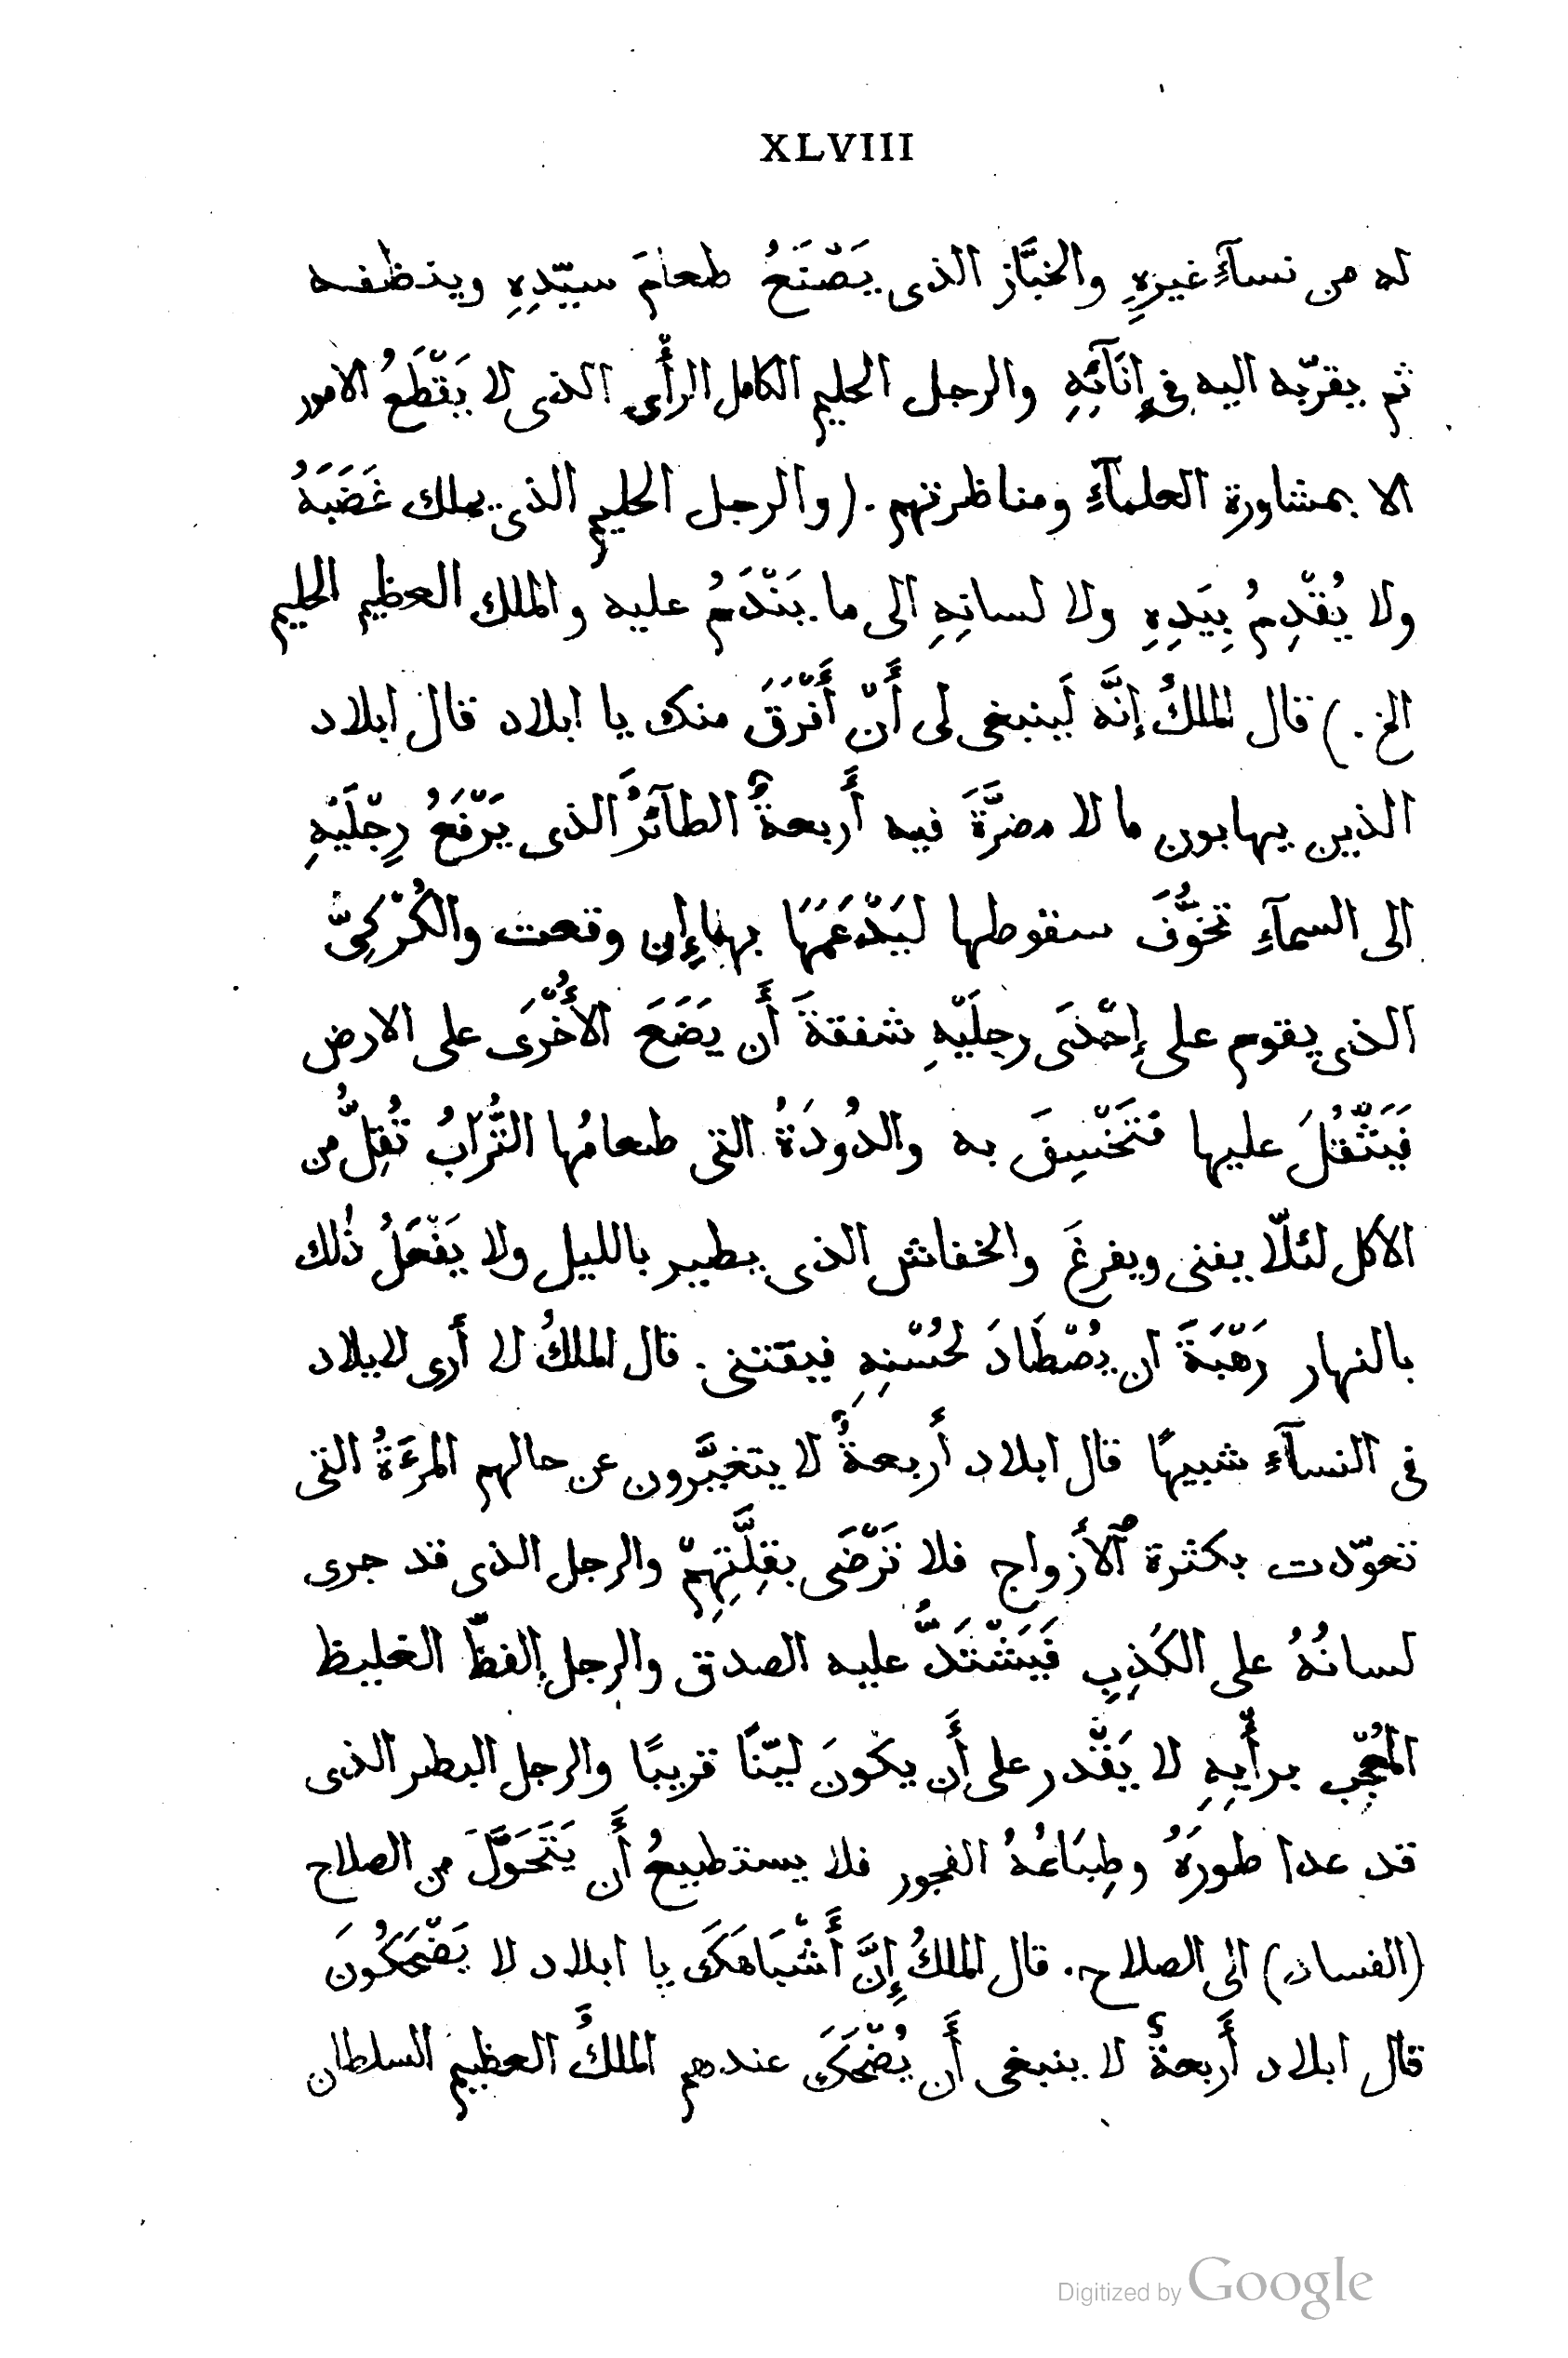 XLVIII
له من نسآءِ غيرِهِ والخبَّاز الذى يَصْنَعُ طعامَ سيّدِهِ وينظفه
ثم يقرّبه اليه فى إِنَآئِهِ والرجل الحليم الكامل الرأْى الذى لا يَقْطَعُ الامور
الا بمشاورة العلمآءِ ومناظرتهم . (والرجل الحليم الذى يملك غَضَبَهُ
ولا يُقْدِمُ بِيَدِهِ ولا لسانِهِ الى ما يَنْدَمُ عليه والملك العظيم الحليم
الخ .) قال الملكُ إِنَّه لَينبغى لى أَنْ أَفْرَقَ منك يا ابلاد قال ابلاد
الذين يهابون ما لا مضرَّةَ فيه أَربعةٌ الطآئرُ الذى يَرْفَعُ رِجْلَيْهِ
الى السمآءِ تخوُّفَ سقوطها لِيَدْعَمَهَا بهما إِن وقعت والكُرْكِىُّ
الذى يقوم على إِحْدَى رجلَيْهِ شفقةَ أَن يَضَعَ الأُخْرَى على الارض
فَيَثْقُلَ عليها فتَخْسِفَ به والدُودَةُ التى طعامُها التُّرَابُ تُقِلُّ من
الأكل لئلّا يفنى ويفرغَ والخفاش الذى يطير بالليل ولا يَفْعَلُ ذٰلك
بالنهار رَهْبَةَ ان يُصْطَادَ لحُسْنِهِ فيقتنى . قال الملكُ لا أرى لايلاد
فى النسآءِ شبيهًا قال ابلاد أَربعةٌ لا يتغيَّرون عن حالهم المرءَةُ التى
تعوّدت بكثرة ٱلأَزواج فلا تَرْضَى بقِلَّتِهِمْ والرجل الذى قد جرى
لسانُهُ على الكَذِبِ فَيَشْتَدُّ عليه الصدق والرجل الفظّ الغليظ
المُعْجِب برأْيِهِ لا يَقْدر على أَن يكونَ ليّنًا قريبًا والرجل البطر الذى
قد عدا طورَهُ وطِبَاعُهُ الفجور فلا يستطيعُ أَن يَتَحَوَّلَ من الصلاح
(الفساد) الى الصلاح . قال الملكُ إِنَّ أَشْبَاهَكَ يا ابلاد لا يَضْحَكُونَ
قال ابلاد أَربعةٌ لا ينبغى أَن يُضْحَكَ عندهم الملكُ العظيم السلطان
Digitized by Google